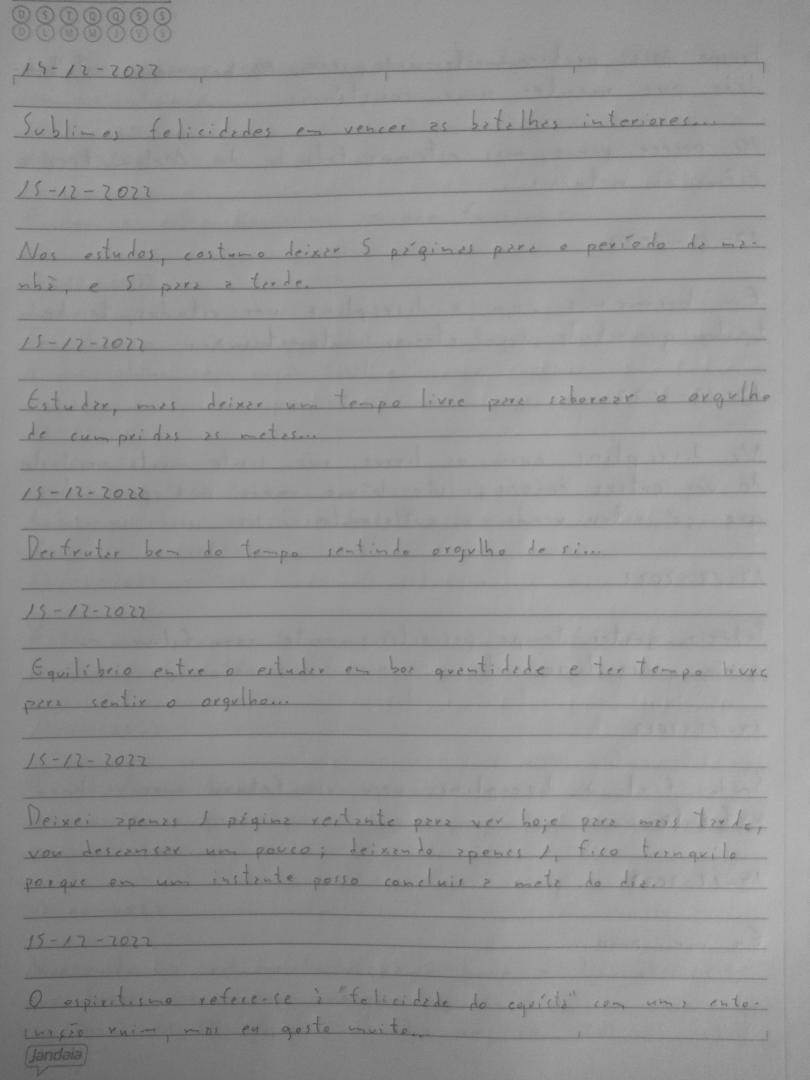 D S T Q Q S S
D L M M J V S
15-12-2022
Sublimes felicidades em vencer as batalhas interiores...
15-12-2022
Nos estudos, costumo deixar 5 páginas para o período da ma-
nhã, e 5 para a tarde.
15-12-2022
Estudar, mas deixar um tempo livre para saborear o orgulho
de cumpridas as metas...
15-12-2022
Desfrutar bem do tempo sentindo orgulho de si...
15-12-2022
Equilíbrio entre o estudar em boa quantidade e ter tempo livre
para sentir o orgulho...
15-12-2022
Deixei apenas 1 página restante para ver hoje para mais tarde,
vou descansar um pouco; deixando apenas 1, fico tranquilo
porque em um instante posso concluir a meta do dia.
15-12-2022
O espiritismo refere-se à "felicidade do egoísta" com uma ento-
nação ruim, mas eu gosto muito...
Jandaia